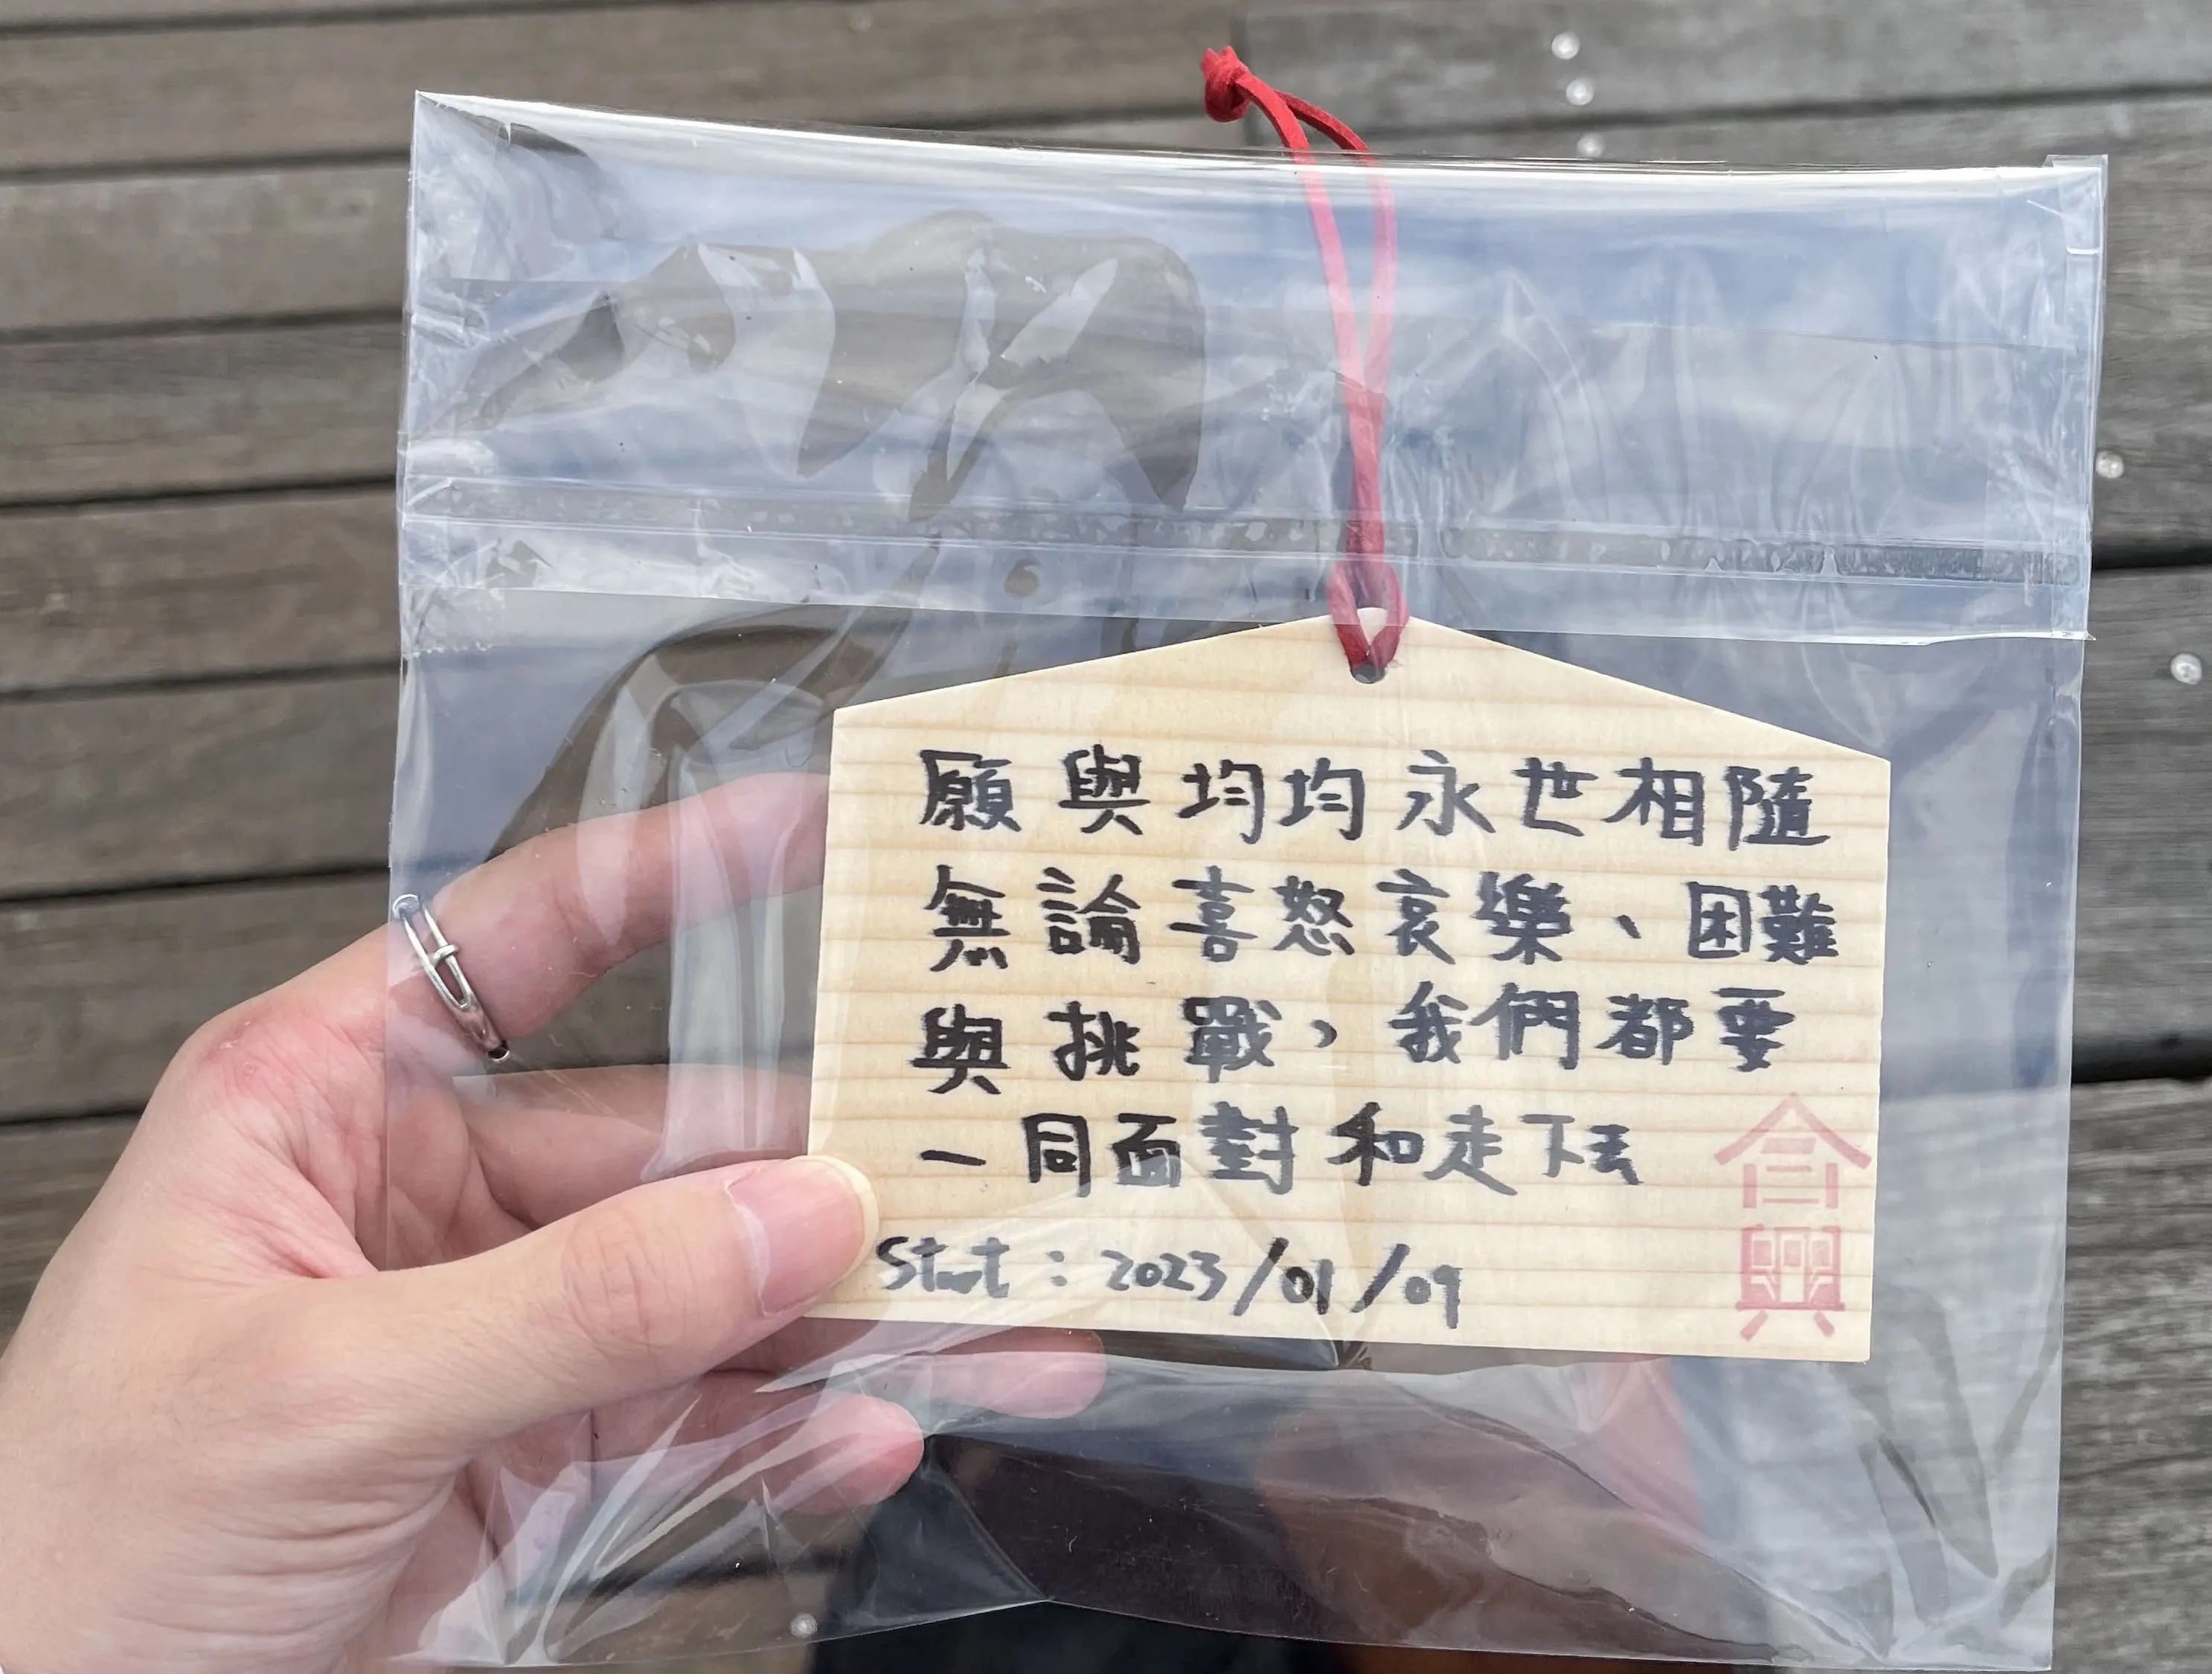 願與均均永世相隨
無論喜怒哀樂、困難
與挑戰，我們都要
一同面對和走下去
Start：2023/01/09
合興